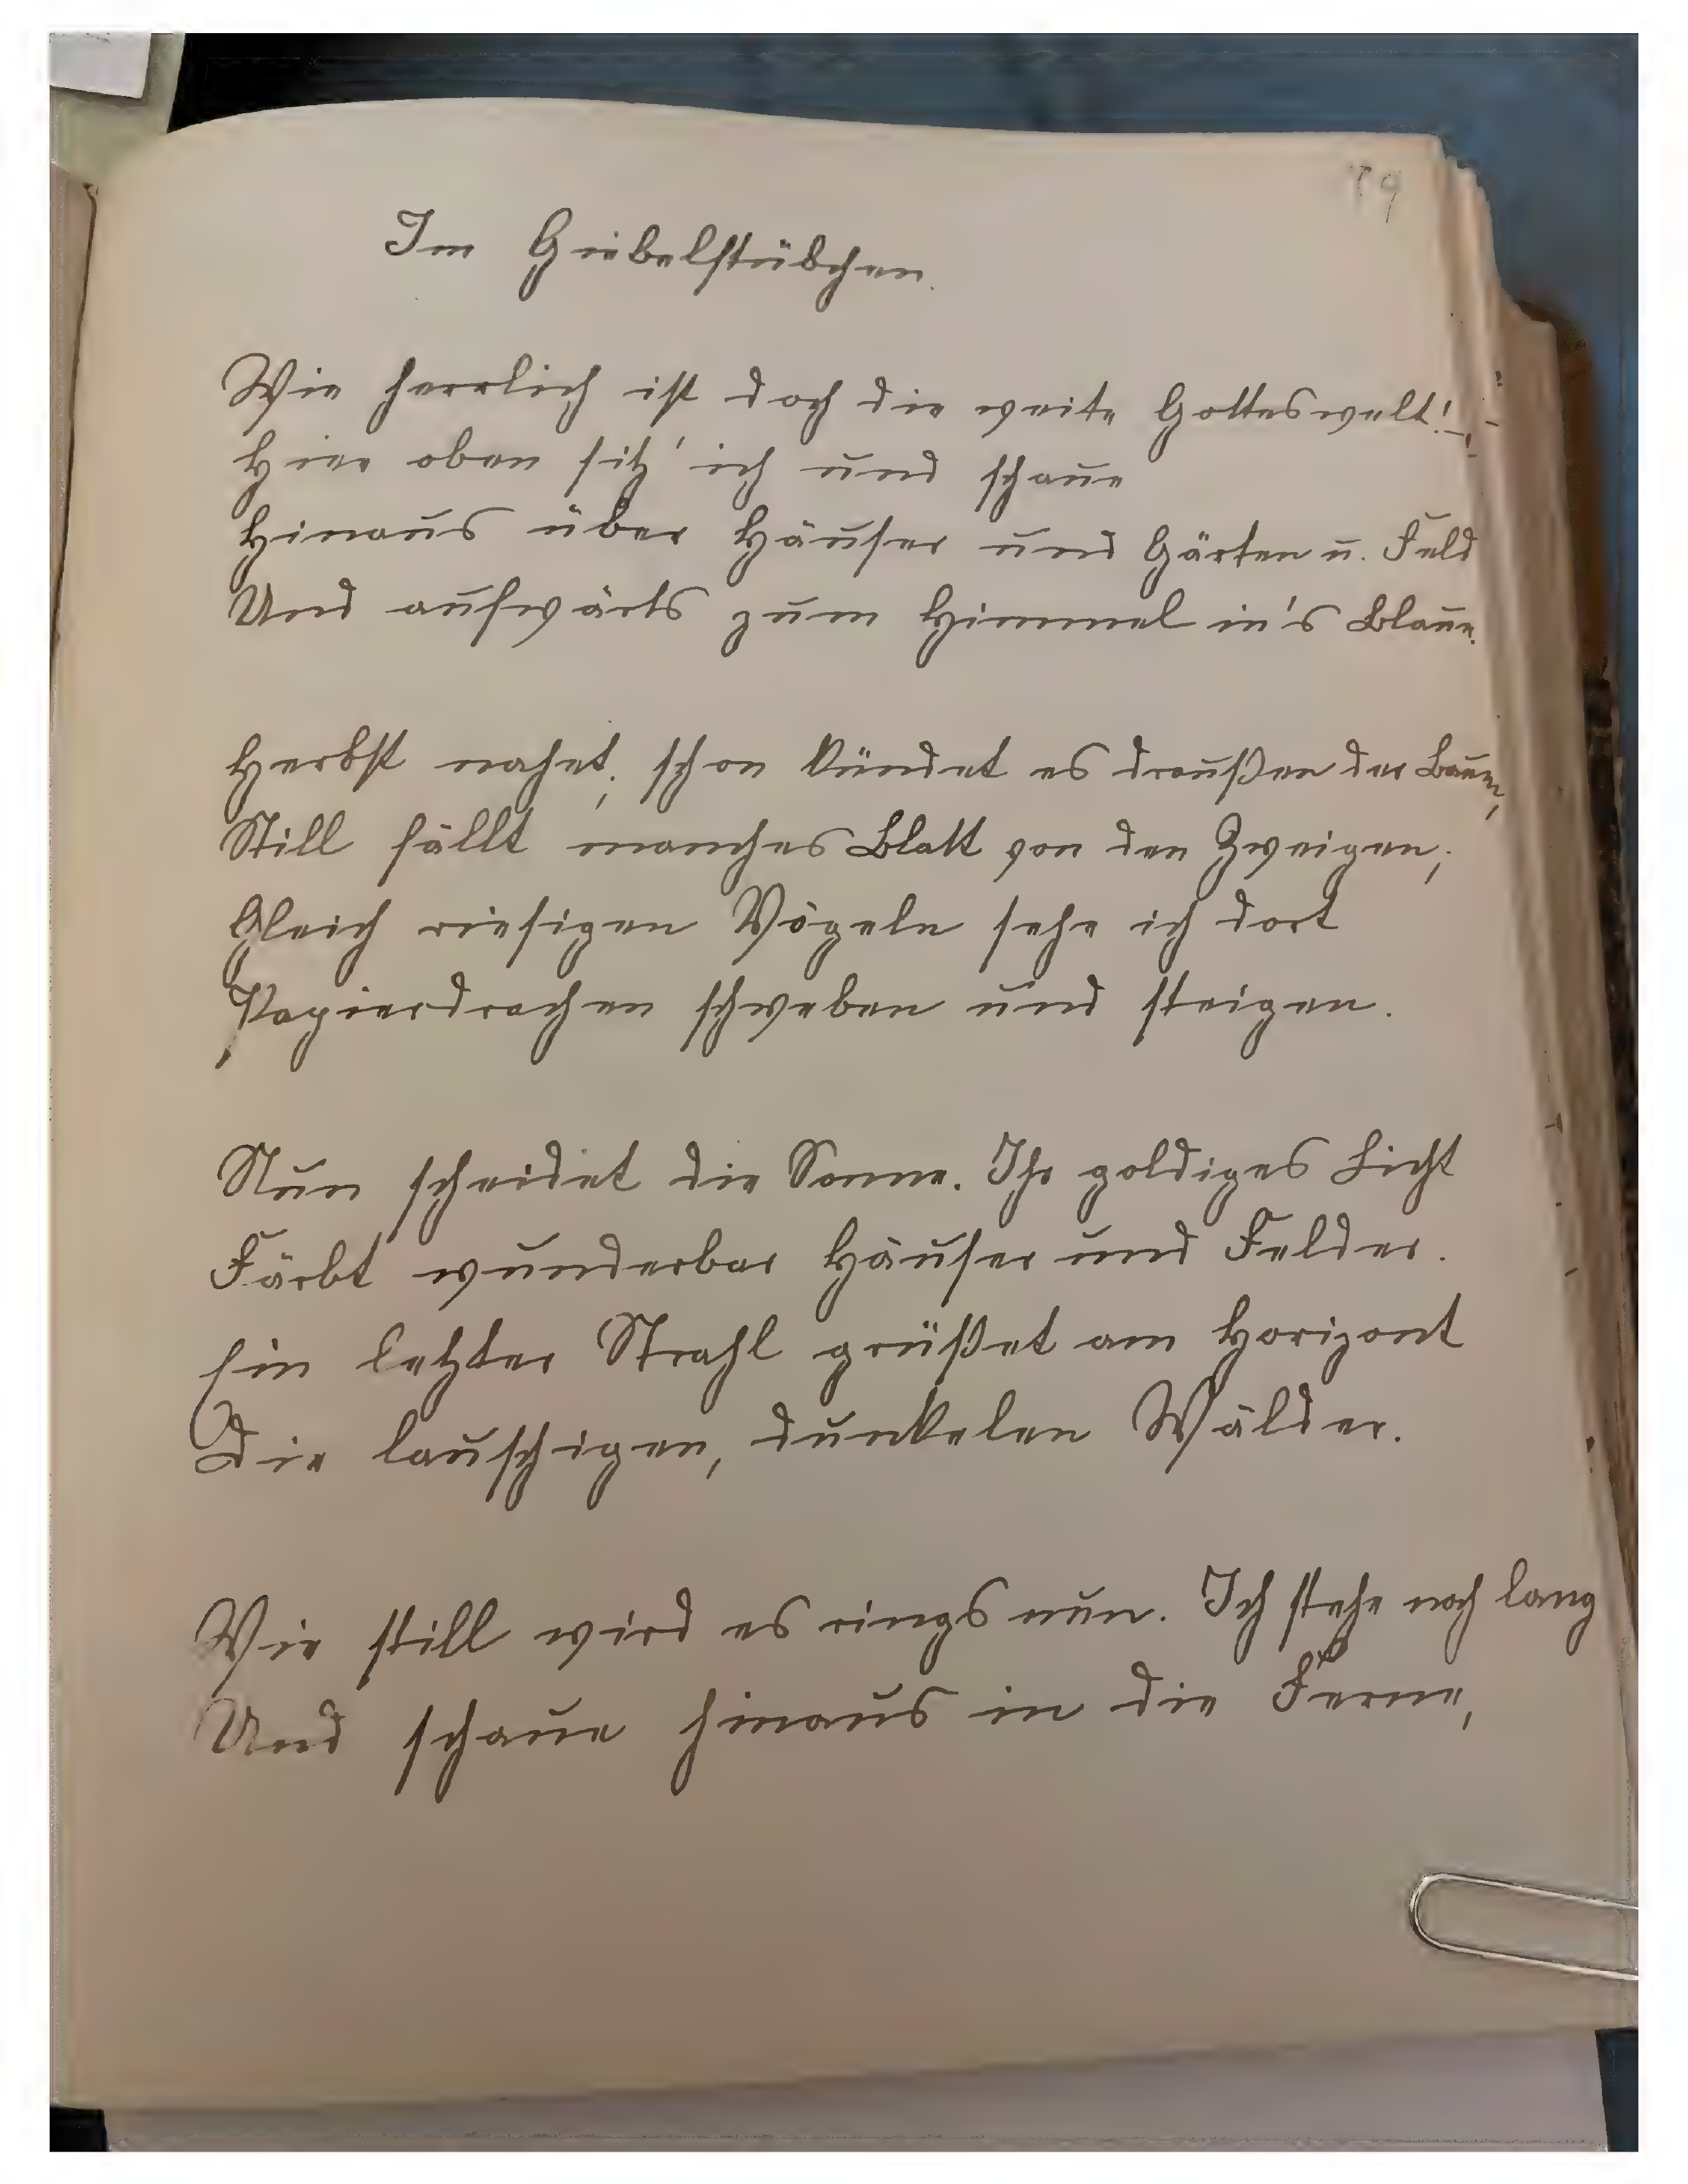 79
Im Giebelstübchen.
Wie herrlich ist doch die weite Gotteswelt!
Hier oben sitz' ich und schaue
Hinaus über Häuser und Gärten u. Feld
Und aufwärts zum Himmel in's Blaue.
Herbst nahet; schon kündet es draußen der Baum,
Still fällt manches Blatt von den Zweigen;
Gleich riesigen Vögeln sehe ich dort
Papierdrachen schweben und steigen.
Nun scheidet die Sonne. Ihr goldiges Licht
Färbt wunderbar Häuser und Felder.
Ein letzter Strahl grüßet am Horizont
Die lauschigen, dunkelen Wälder.
Wie still wird es rings nun. Ich stehe noch lang
Und schaue hinaus in die Ferne,